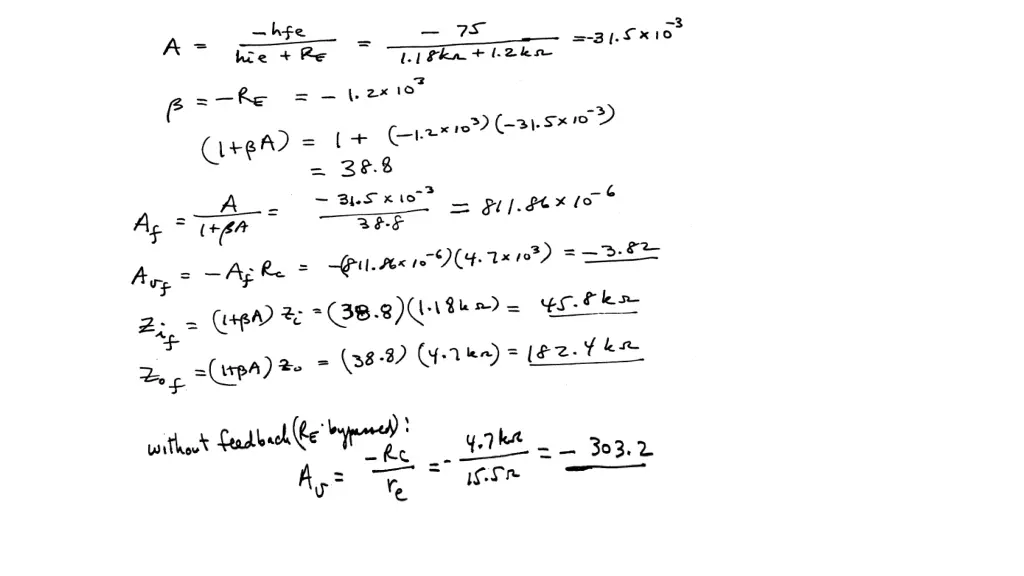 A = -hfe / (hie + RE) = -75 / (1.18kΩ + 1.2kΩ) = -31.5 × 10⁻³
β = -RE = -1.2 × 10³
(1+βA) = 1 + (-1.2×10³)(-31.5×10⁻³)
= 38.8
Af = A / (1+βA) = -31.5 × 10⁻³ / 38.8 = 811.86 × 10⁻⁶
Aυf = -Af Rc = -(811.86×10⁻⁶)(4.7×10³) = -3.82
Zif = (1+βA) Zi = (38.8)(1.18kΩ) = 45.8kΩ
Zof = (1+βA) Zo = (38.8)(4.7kΩ) = 182.4kΩ
without feedback (RE bypassed):
Aυ = -Rc / re = - 4.7kΩ / 15.5Ω = -303.2